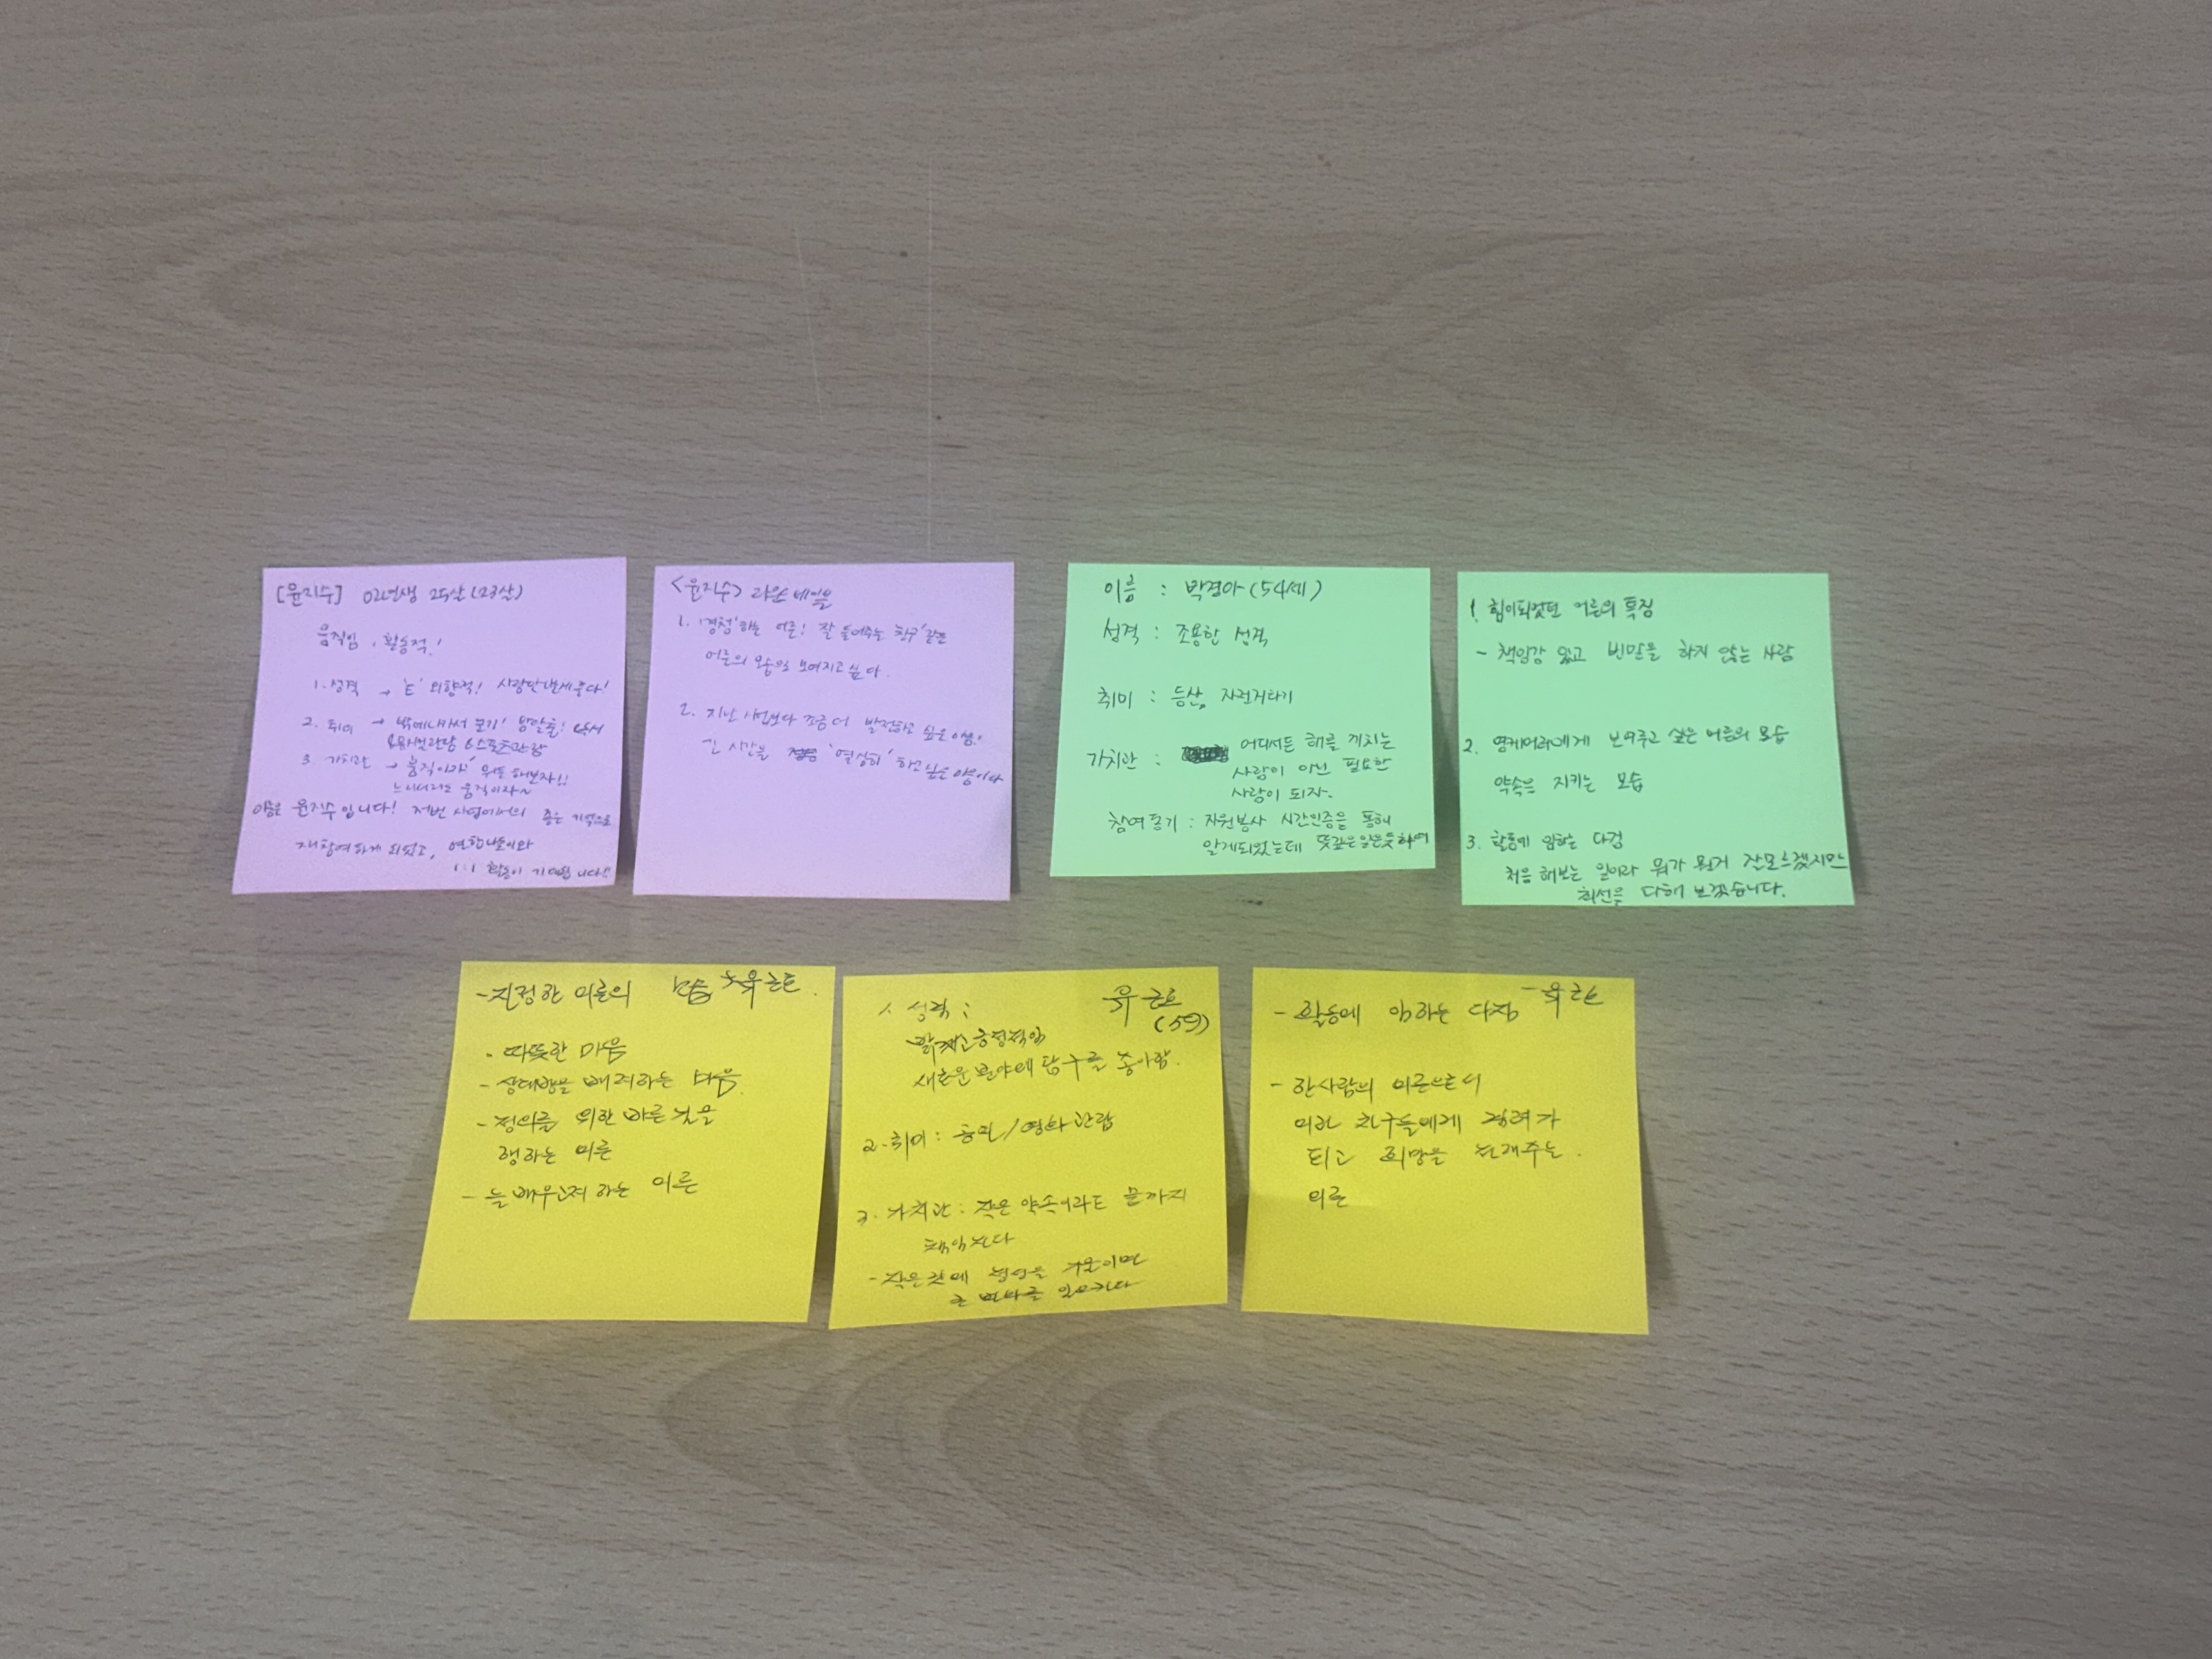 [윤지수] 02년생 25살(23살)
움직임, 활동적!
1. 성격 → 'E' 외향적! 사람만나는게 좋다!
2. 취미 → 밖에나가서 놀기! 방탈출! 독서
&스포츠관람
3. 가치관 → '움직이자' 뭐든 해보자!!
느리더라도 움직이자~
이름은 윤지수입니다! 저번 사업에서의 좋은 기억으로
재참여하게 되었고,
1:1 활동이 기대됩니다!!
<윤지수> 라운드테이블
1. '경청'하는 어른! 잘 들어주는 '친구'같은
어른의 모습으로 보여지고 싶다.
2. 지난 사업보다 조금 더 발전하고 싶은 마음!
긴 시간을 '열심히' 하고싶은 마음이다
이름 : 박경아(54세)
성격 : 조용한 성격
취미 : 등산, 자전거타기
가치관 : 어디서든 해를 끼치는
사람이 아닌 필요한
사람이 되자.
참여동기 : 자원봉사 시간인증을 통해
알게되었는데 뜻깊은일인듯하여
1. 힘이되었던 어른의 특징
- 책임감 있고 빈말을 하지 않는 사람
2. 영케어러에게 보여주고 싶은 어른의 모습
약속은 지키는 모습
3. 활동에 임하는 다짐
처음 해보는 일이라 뭐가 뭔지 잘모르겠지만
최선을 다해 보겠습니다.
- 진정한 어른의 모습
- 따뜻한 마음
- 상대방을 배려하는 마음
- 정의를 위한 바른 것을
행하는 어른
- 늘 배우고져 하는 어른
1. 성격 :
(59)
밝고 긍정적임
새로운 분야에 탐구를 좋아함.
2. 취미 : 등산/영화 관람
3. 가치관 : 작은 약속이라도 끝까지
책임진다
- 작은것에 정성을 기울이면
큰 변화를 일으킨다
- 활동에 임하는 다짐
- 한사람의 어른으로서
어린 친구들에게 격려가
되고 희망을 전해주는
어른